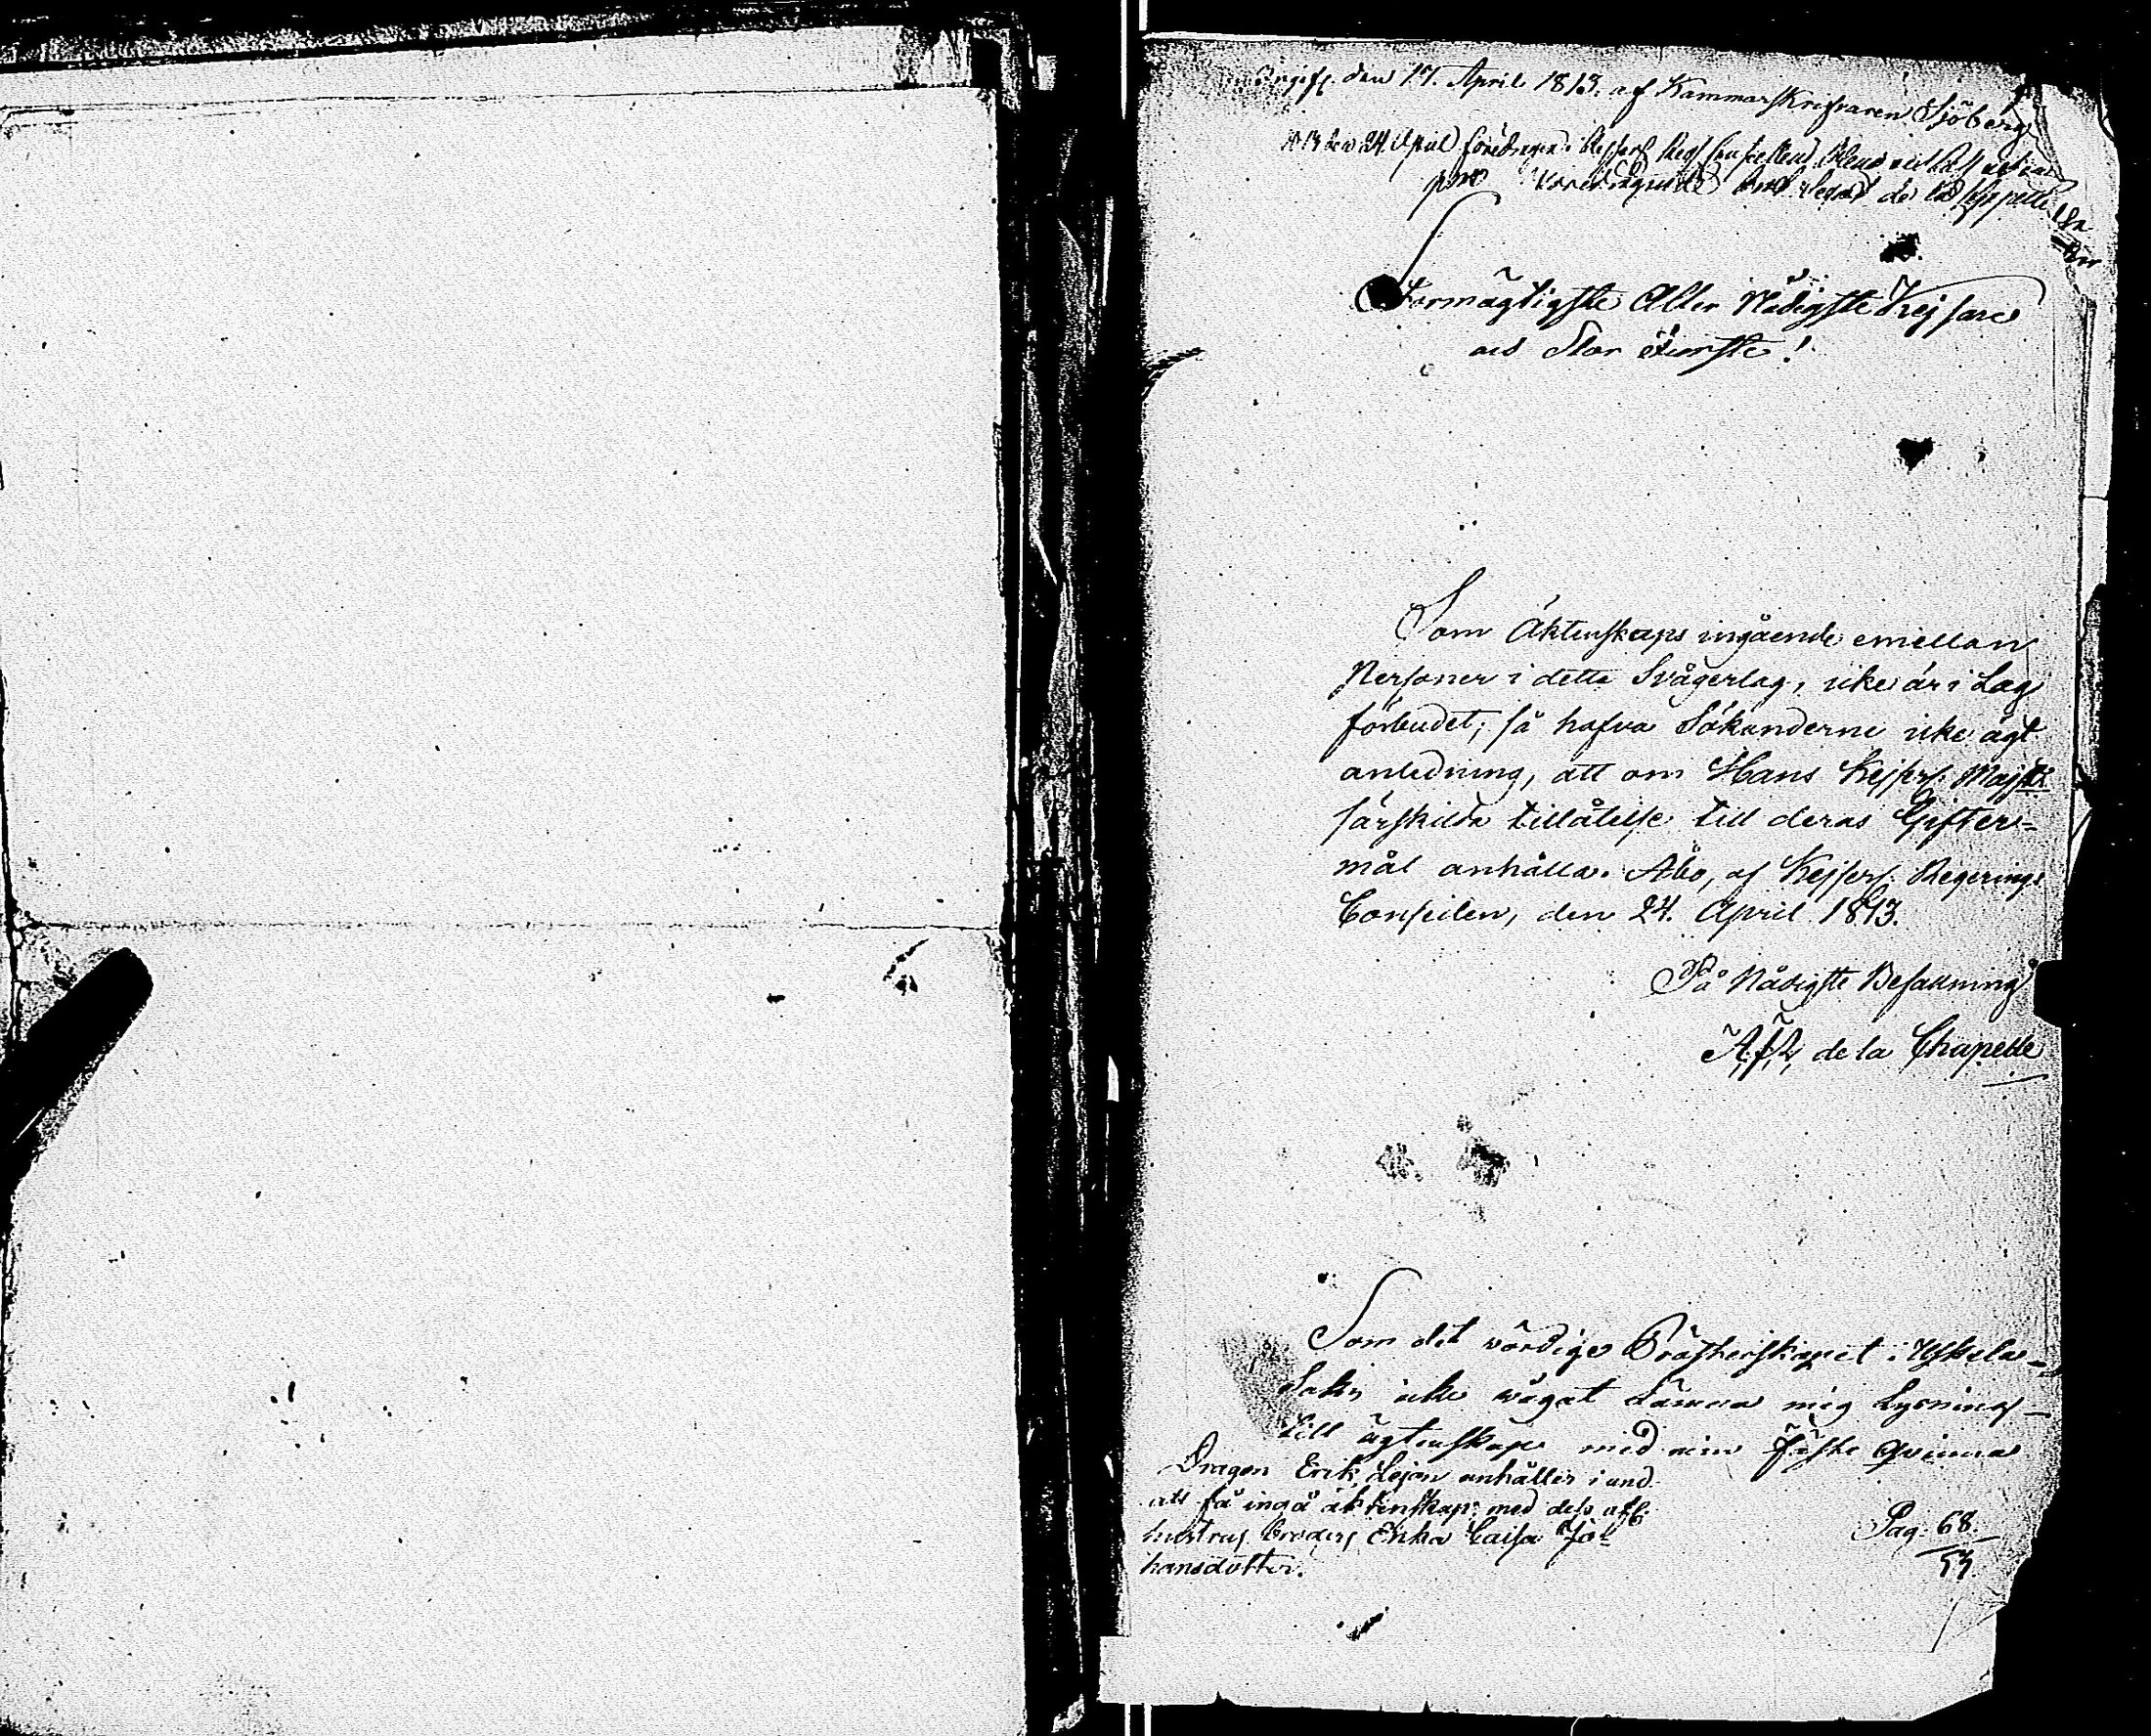 Ingifl. den 17. April 1813. af Kammarskrifvaren Sjöberg
den 24. April föredragen i Kejserl. Regs Conseillen
de la Chapelle
Stormägtigste Aller Nådigste Kejsare
och Stor Furste!
Som Äktenskaps ingående emellan
Personer i detta Svågerlag, icke är i Lag
förbudet; så hafva Sökanderne icke ägt
anledning, att om Hans Kejserl. Majsts
särskilda tillåtelse till deras Gifter-
mål anhålla. Åbo, af Kejserl. Regerings
Conseilen, den 24. April 1813.
På Nådigste Befallning
de la Chapelle
Som det wördige Prästerskapet i Uskela
Sokn icke wågat Lämna mig Lysning
till ägtenskap med min fäste qvinna
Dragon Erik Lejon anhåller i und.
att få ingå äktenskap med dess afl.
hustrus broders Enka Caisa Jo-
hansdotter.
Pag. 68.
53.